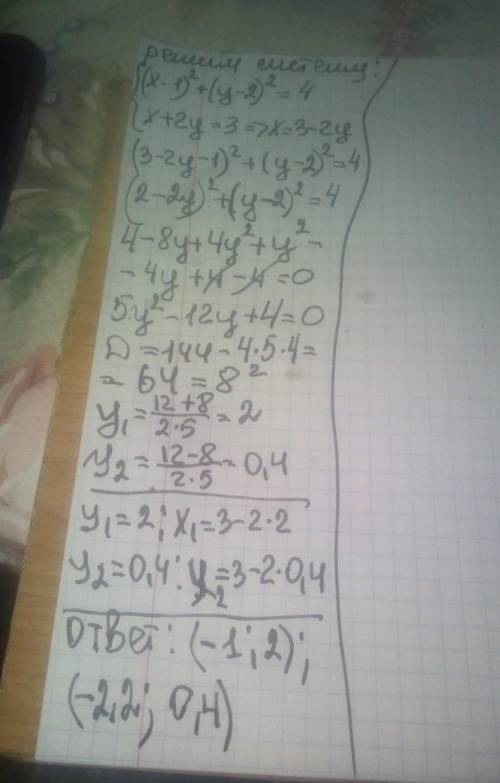 решим систему:
{(x-1)²+(y-2)²=4
{x+2y=3=>x=3-2y
(3-2y-1)²+(y-2)²=4
(2-2y)²+(y-2)²=4
4-8y+4y²+y²-
-4y+4-4=0
5y²-12y+4=0
D=144-4·5·4=
=64=8²
y₁=(12+8)/(2·5)=2
y₂=(12-8)/(2·5)=0,4
y₁=2; x₁=3-2·2
y₂=0,4: x₂=3-2·0,4
Ответ: (-1;2);
(-2,2; 0,4)